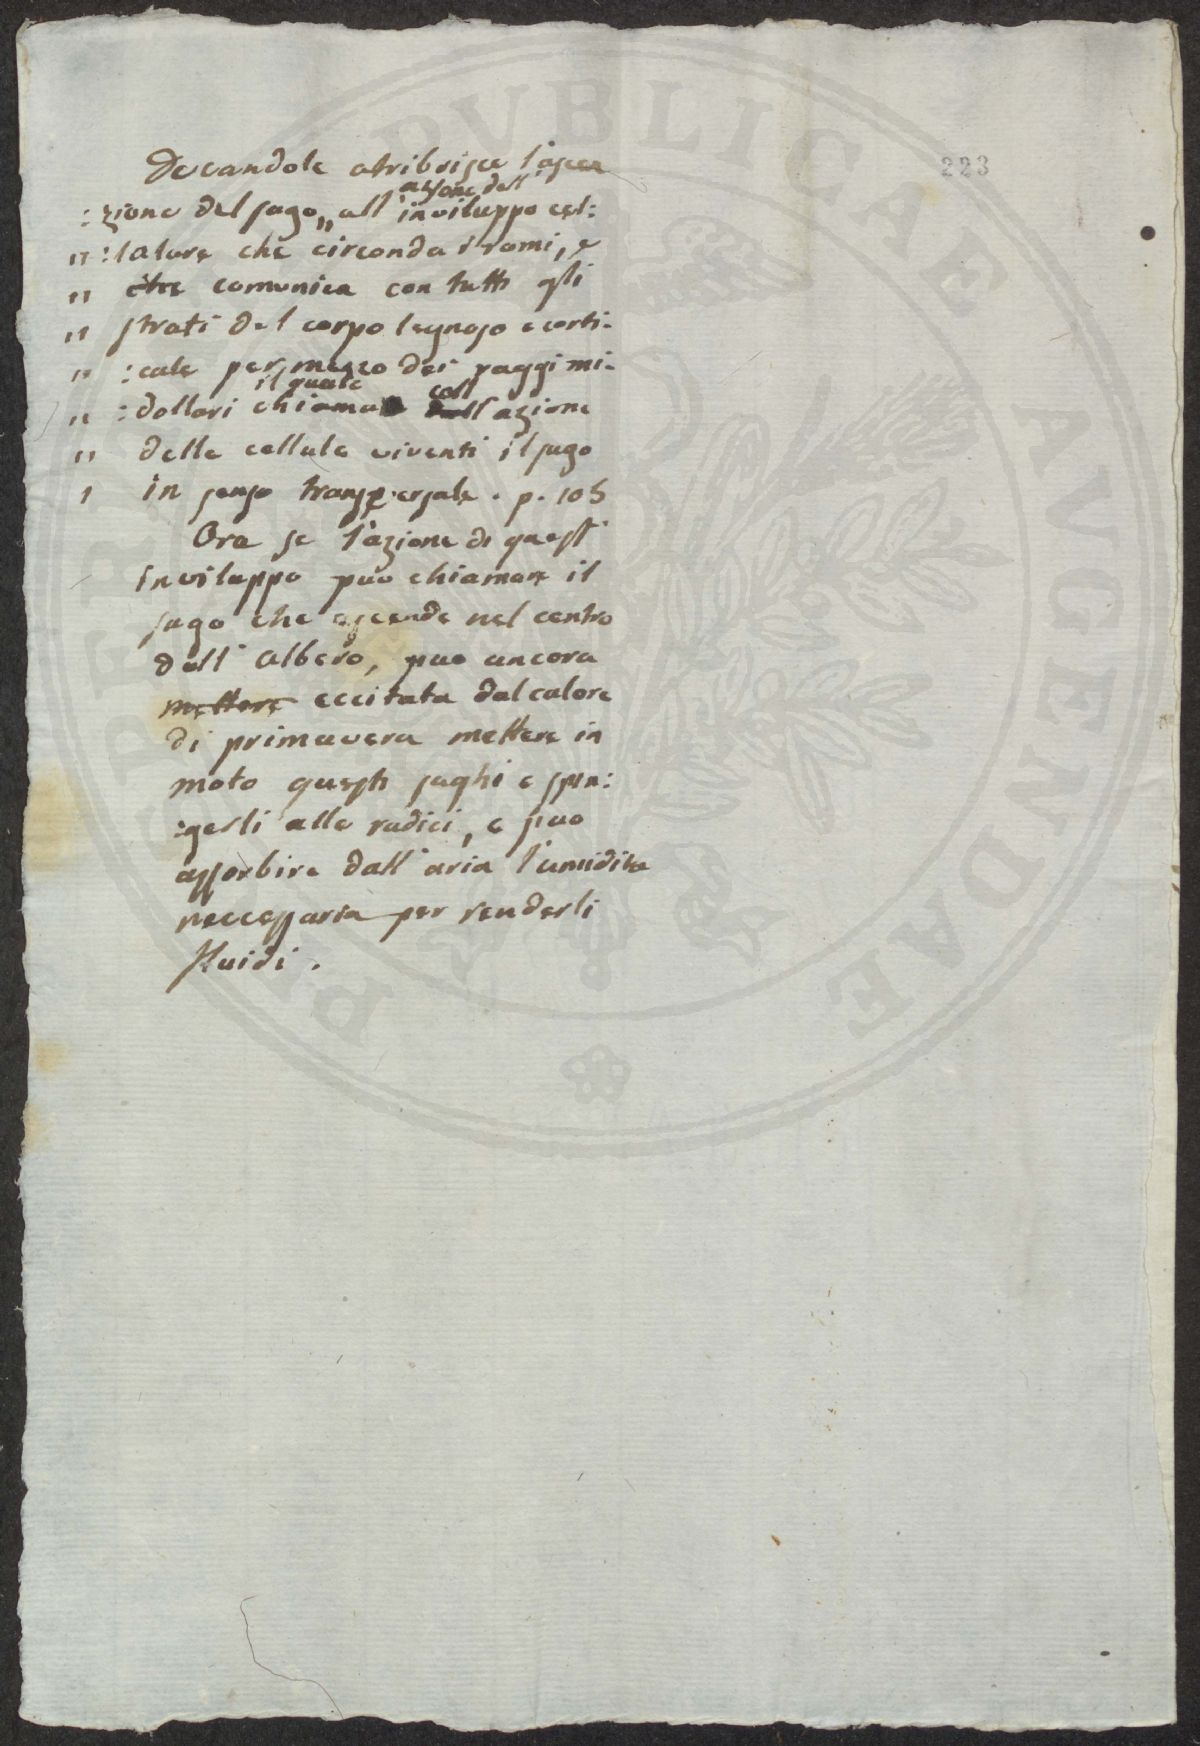 223
Decandole atribuisce l'ascen
:zione del sugo „ all' azione dell' inviluppo cel:
„ :lulare che circonda i rami, e
„ che comunica con tutti gli
„ strati del corpo legnoso e corti:
„ :cale per mezzo dei raggi mi:
„ :dollari il quale chiama coll' azione
„ delle cellule viventi il sugo
„ in senso transversale . p. 105
Ora se l'azione di quest'
inviluppo può chiamare il
sugo che ascende nel centro
dell' albero, può ancora
mettere eccitata dal calore
di primavera mettere in
moto questi sughi e spin:
:gerli alle radici, e può
assorbire dall' aria l'umidità
neccessaria per renderli
fluidi .
PERPETUAE PUBLICAE AUGENDAE